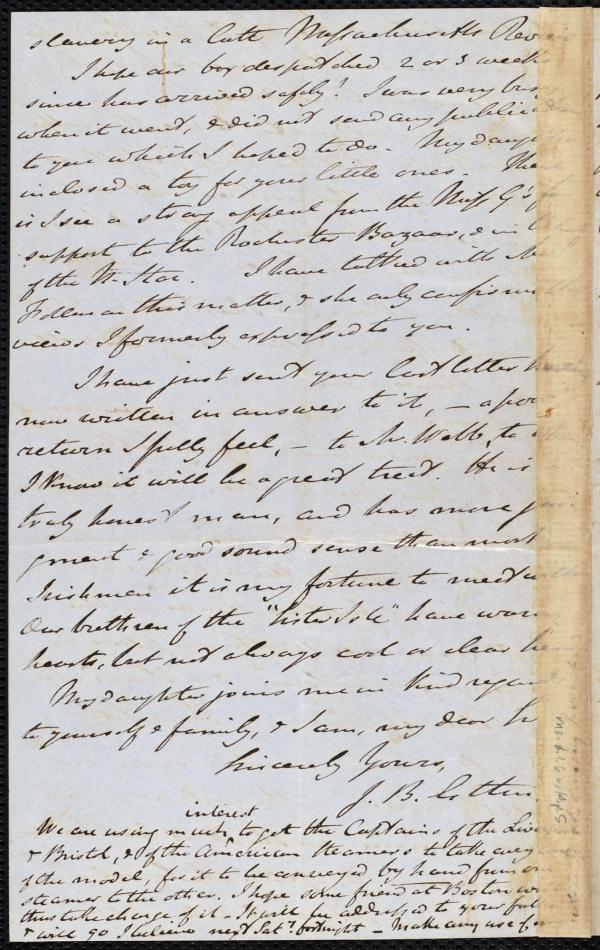 slavery in a late Massachusetts Rev
I hope our box despatched 2 or 3 weeks
since has arrived safely! I was very busy
when it went, & did not send any publica
to you which I hoped to do. My daugh
inclosed a toy for your little ones. The
is I see a strong appeal from the Mass G's
support to the Rochester Bazaar, & in
of the N. Star. I have talked with M
Follen on this matter, & she only confirms
views I formerly expressed to you.
I have just sent your last letter
now written in answer to it, — a poor
return I fully feel, — to Mr. Webb, to
I know it will be a great treat. He is
truly honest man, and has more ju
gment & good sound sense than most
Irishmen it is my fortune to meet w
Our brethren of the "Sister Isle" have warm
hearts, but not always cool or clear he
My daughter joins me in kind regar
to yourself & family, & I am, my dear
Sincerely Yours,
J. B. Estlin.
We are using much interest to get the Captains of the Live
& Bristol, & of the American Steamers to take away
of the model, for it to be conveyed by hand from on
steamer to the other. I hope some friend at Boston wi
thus take charge of it - It will be addressed to your
& will go I believe next Sat.y fortnight - Make any use of